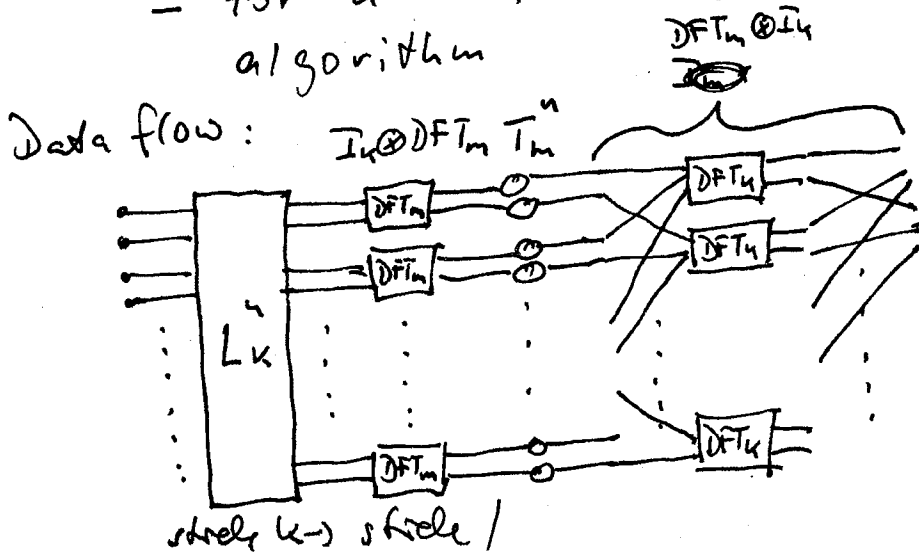 algorithm
DFTₘ ⊗ Iₖ
Data flow: Iₖ⊗DFTₘ Tₘⁿ
DFTₘ
DFTₖ
DFTₘ
DFTₖ
Lₖⁿ
DFTₘ
DFTₖ
stride k→ stride 1